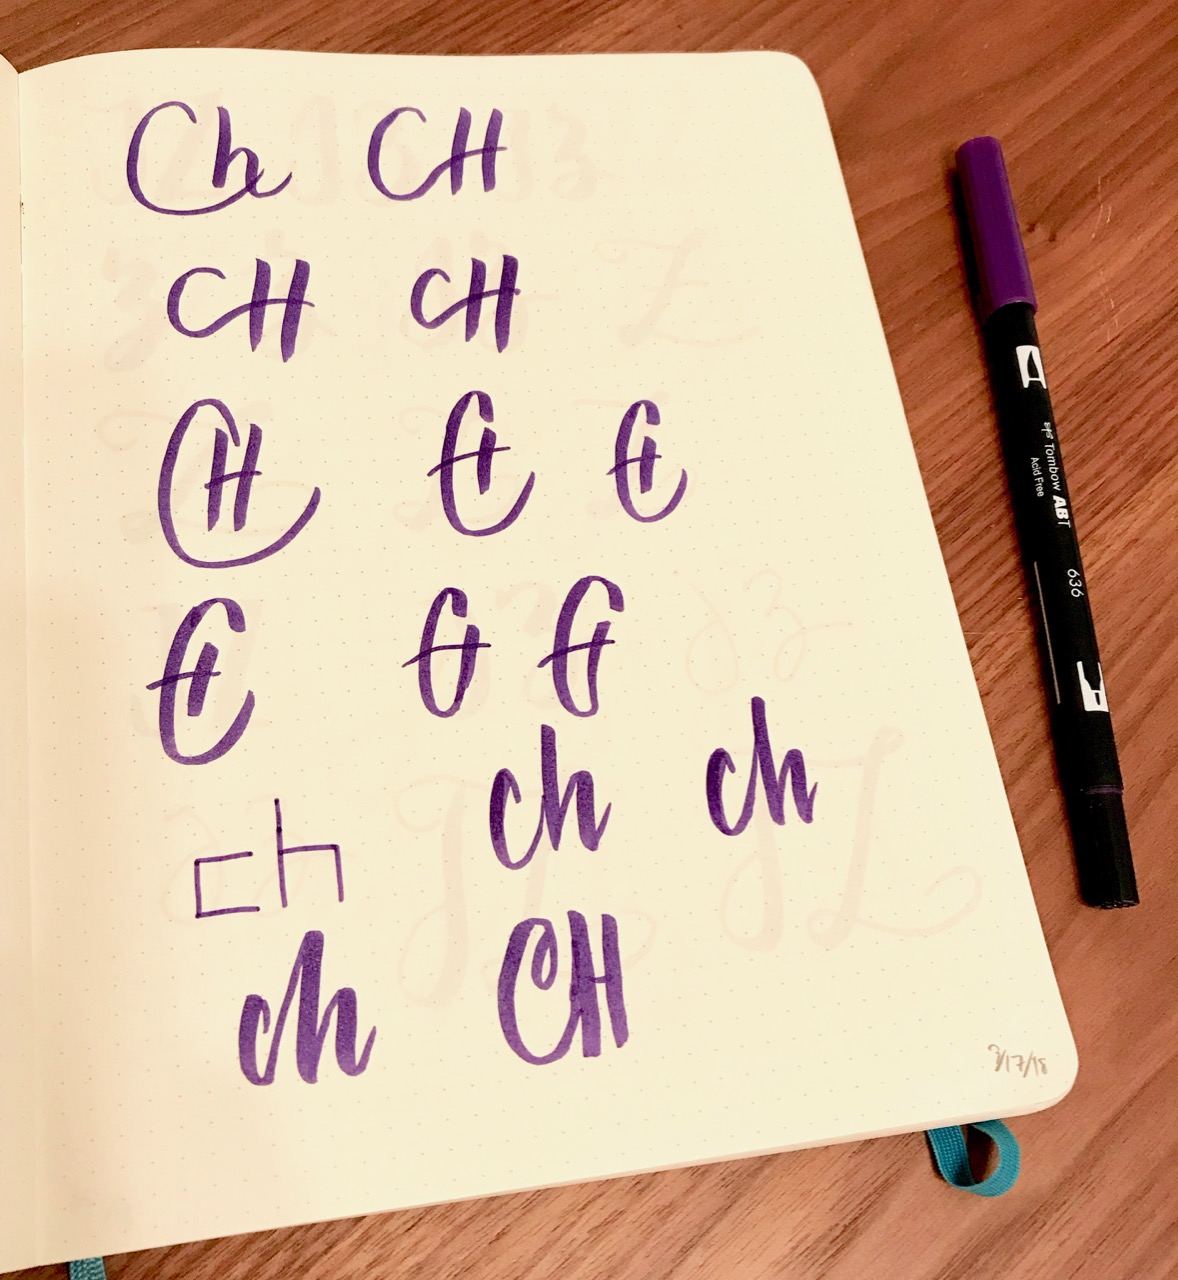 Ch CH
CH CH
CH CH CH
CH CH CH
ch ch
ch
ch CH
Tombow ABT
Acid Free
636